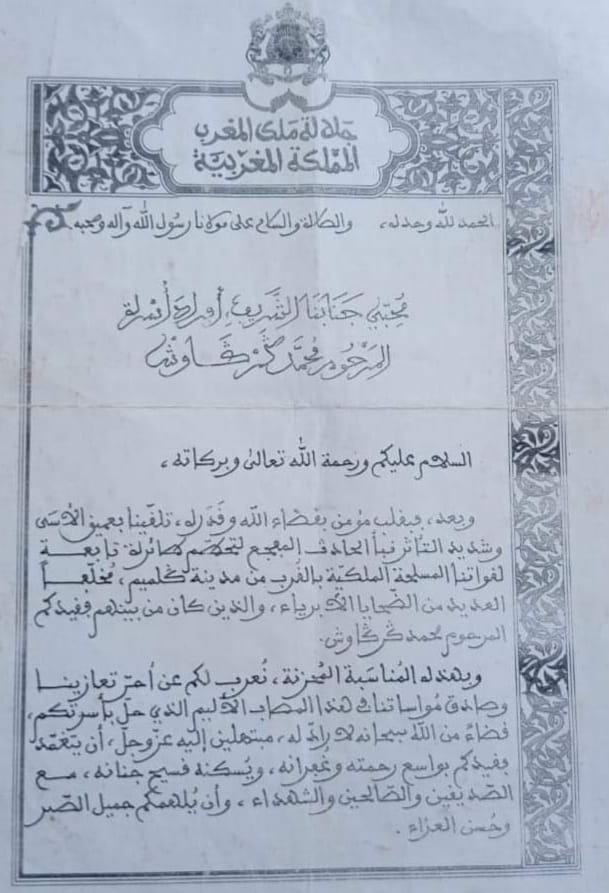 جلالة ملك المغرب
المملكة المغربية
الحمد لله وحده، والصلاة والسلام على مولانا رسول الله وآله وصحبه
مُحِبّي جَنَابِنَا الشَّرِيفِ، أفراد أُسْرة
المَرْحُوم مُحَمَّد گرْگَاوش
السلام عليكم ورحمة الله تعالى وبركاته،
وبعد، فبقلب مؤمن بقضاء الله وقَدَره، تلقّينا بعميق الأسى
وشديد التأثر نبأ الحادث المفجع لتحطم طائرة تابعة
لقواتنا المسلحة الملكيّة بالقُرب من مدينة گلميم، مُخلّفاً
العديد من الضحايا الأبرياء، والذين كان من بينهم فقيدكم
المرحوم محمد گرگاوش.
وبهذه المُناسَبة المُحزنة، نُعرب لكم عن أحرّ تعازينا
وصادق مُواساتنا في هذا المصاب الأليم الذي حلّ بأسرتكم،
قضاءً من الله سبحانه لا رادّ له، مبتهلين إليه عزّ وجلّ، أن يتغمّد
فقيدكم بواسع رحمته وغُفرانه، ويُسكنه فسيح جنانه، مع
الصّديقين والصّالحين والشهداء، وأن يُلهمكم جميل الصّبر
وحُسن العزاء.